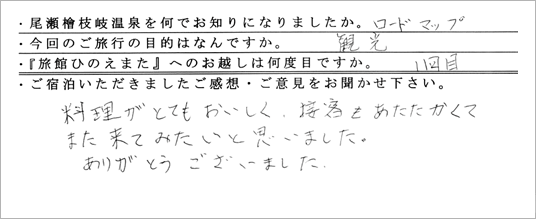 ・尾瀬檜枝岐温泉を何でお知りになりましたか。ロードマップ
・今回のご旅行の目的はなんですか。 観光
・『旅館ひのえまた』へのお越しは何度目ですか。 1回目
・ご宿泊いただきましたご感想・ご意見をお聞かせ下さい。
料理がとてもおいしく、接客もあたたかくて
また来てみたいと思いました。
ありがとうございました.